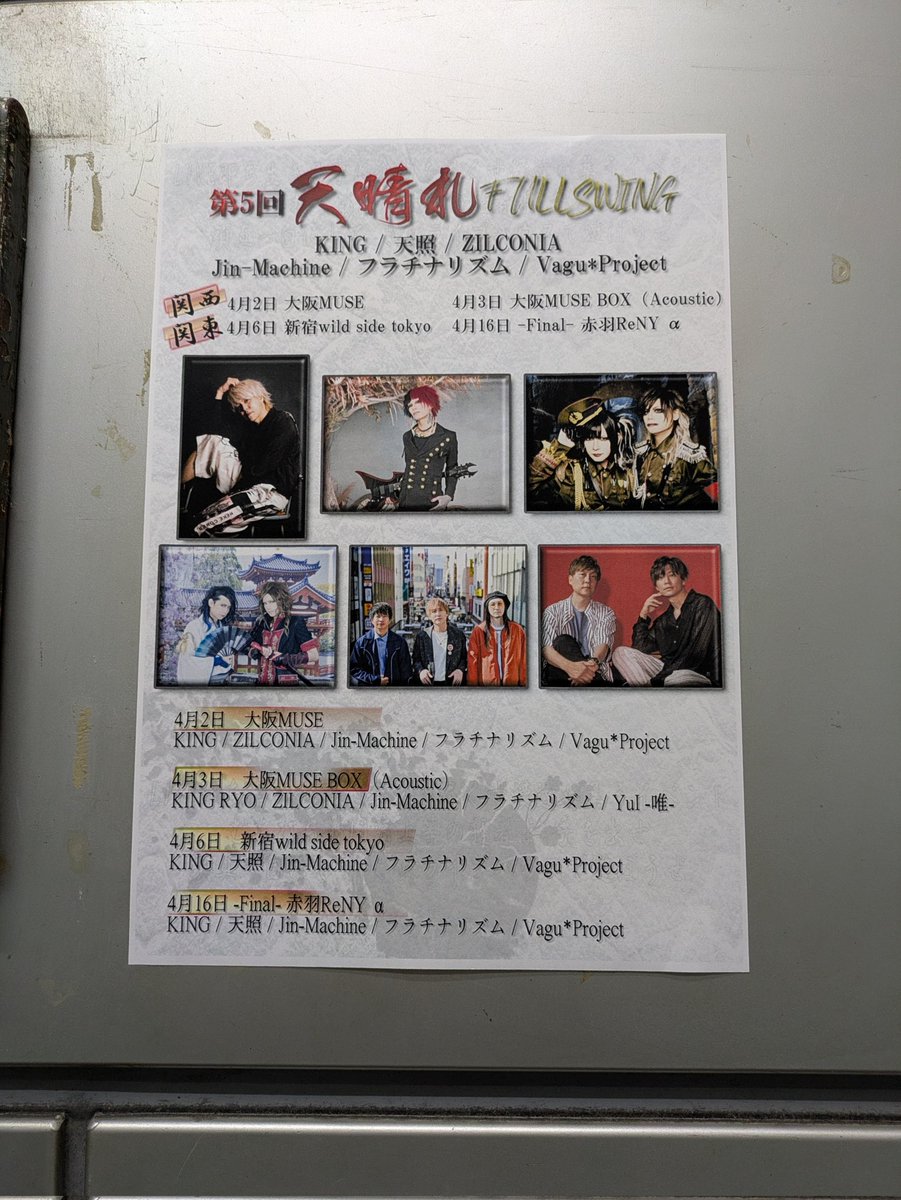 第5回 天晴札 FULLSWING
KING / 天照 / ZILCONIA
Jin-Machine / フラチナリズム / Vagu*Project
関西 4月2日 大阪MUSE 4月3日 大阪MUSE BOX（Acoustic）
関東 4月6日 新宿wild side tokyo 4月16日 -Final- 赤羽ReNY α
4月2日 大阪MUSE
KING / ZILCONIA / Jin-Machine / フラチナリズム / Vagu*Project
4月3日 大阪MUSE BOX（Acoustic）
KING RYO / ZILCONIA / Jin-Machine / フラチナリズム / YuI -唯-
4月6日 新宿wild side tokyo
KING / 天照 / Jin-Machine / フラチナリズム / Vagu*Project
4月16日 -Final- 赤羽ReNY α
KING / 天照 / Jin-Machine / フラチナリズム / Vagu*Project